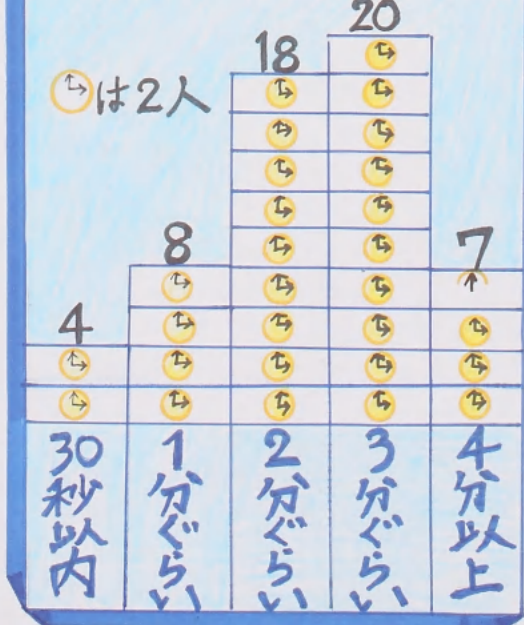 は2人
4
8
18
20
7
30秒以内
1分ぐらい
2分ぐらい
3分ぐらい
4分以上